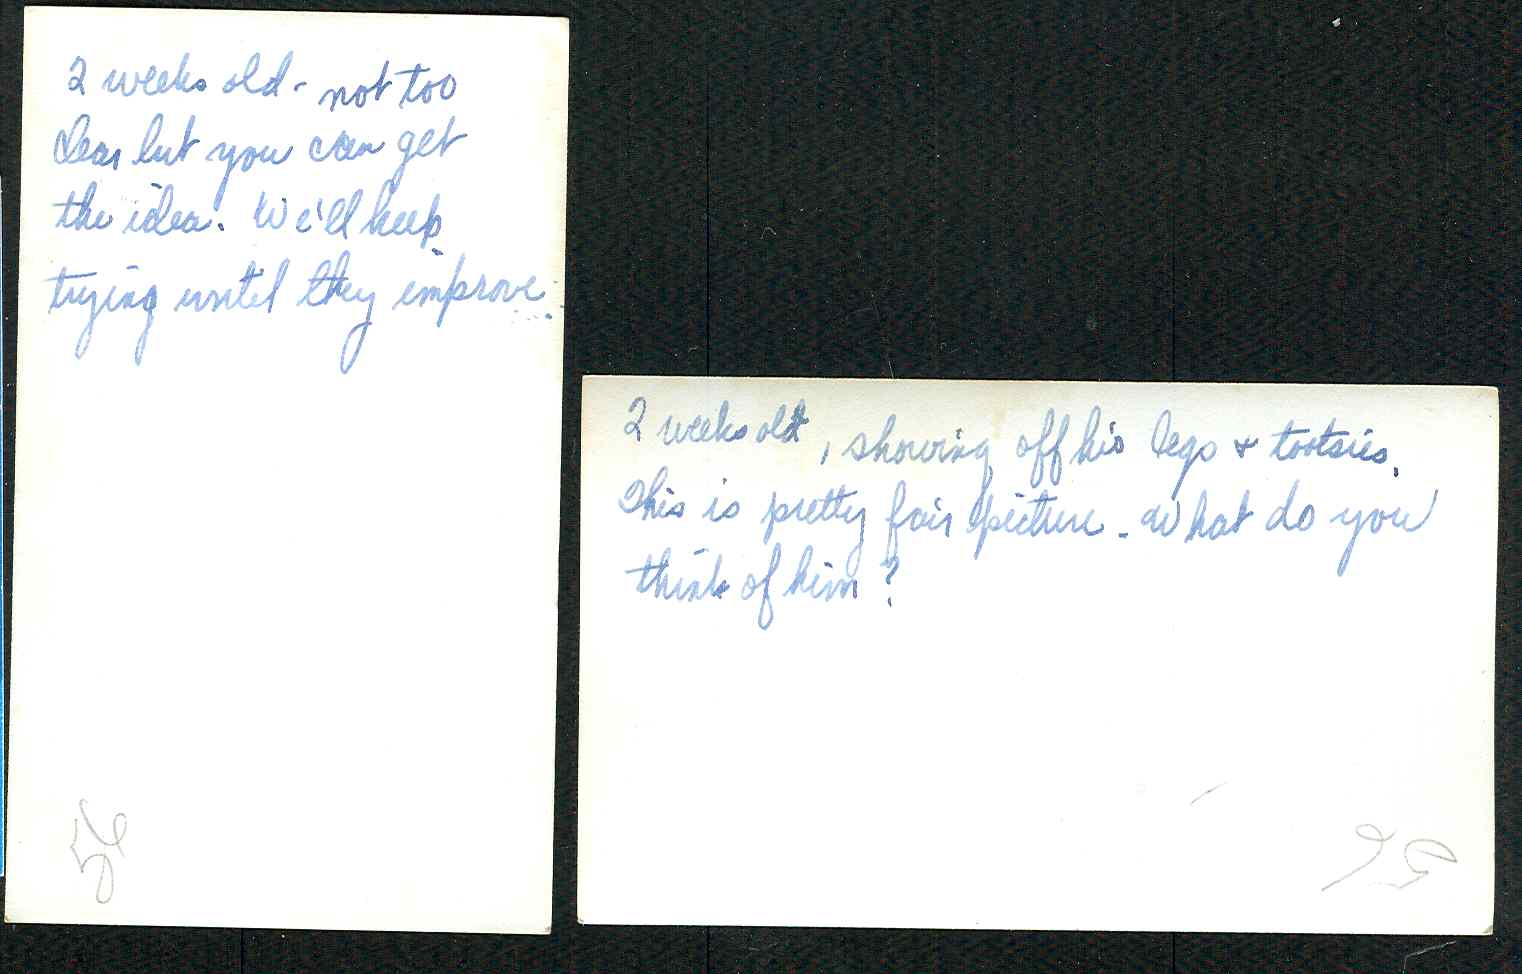 2 weeks old - not too
clear but you can get
the idea. We'll keep
trying until they improve.
56
2 weeks old, showing off his legs & tootsies.
This is pretty fair picture - What do you
think of him?